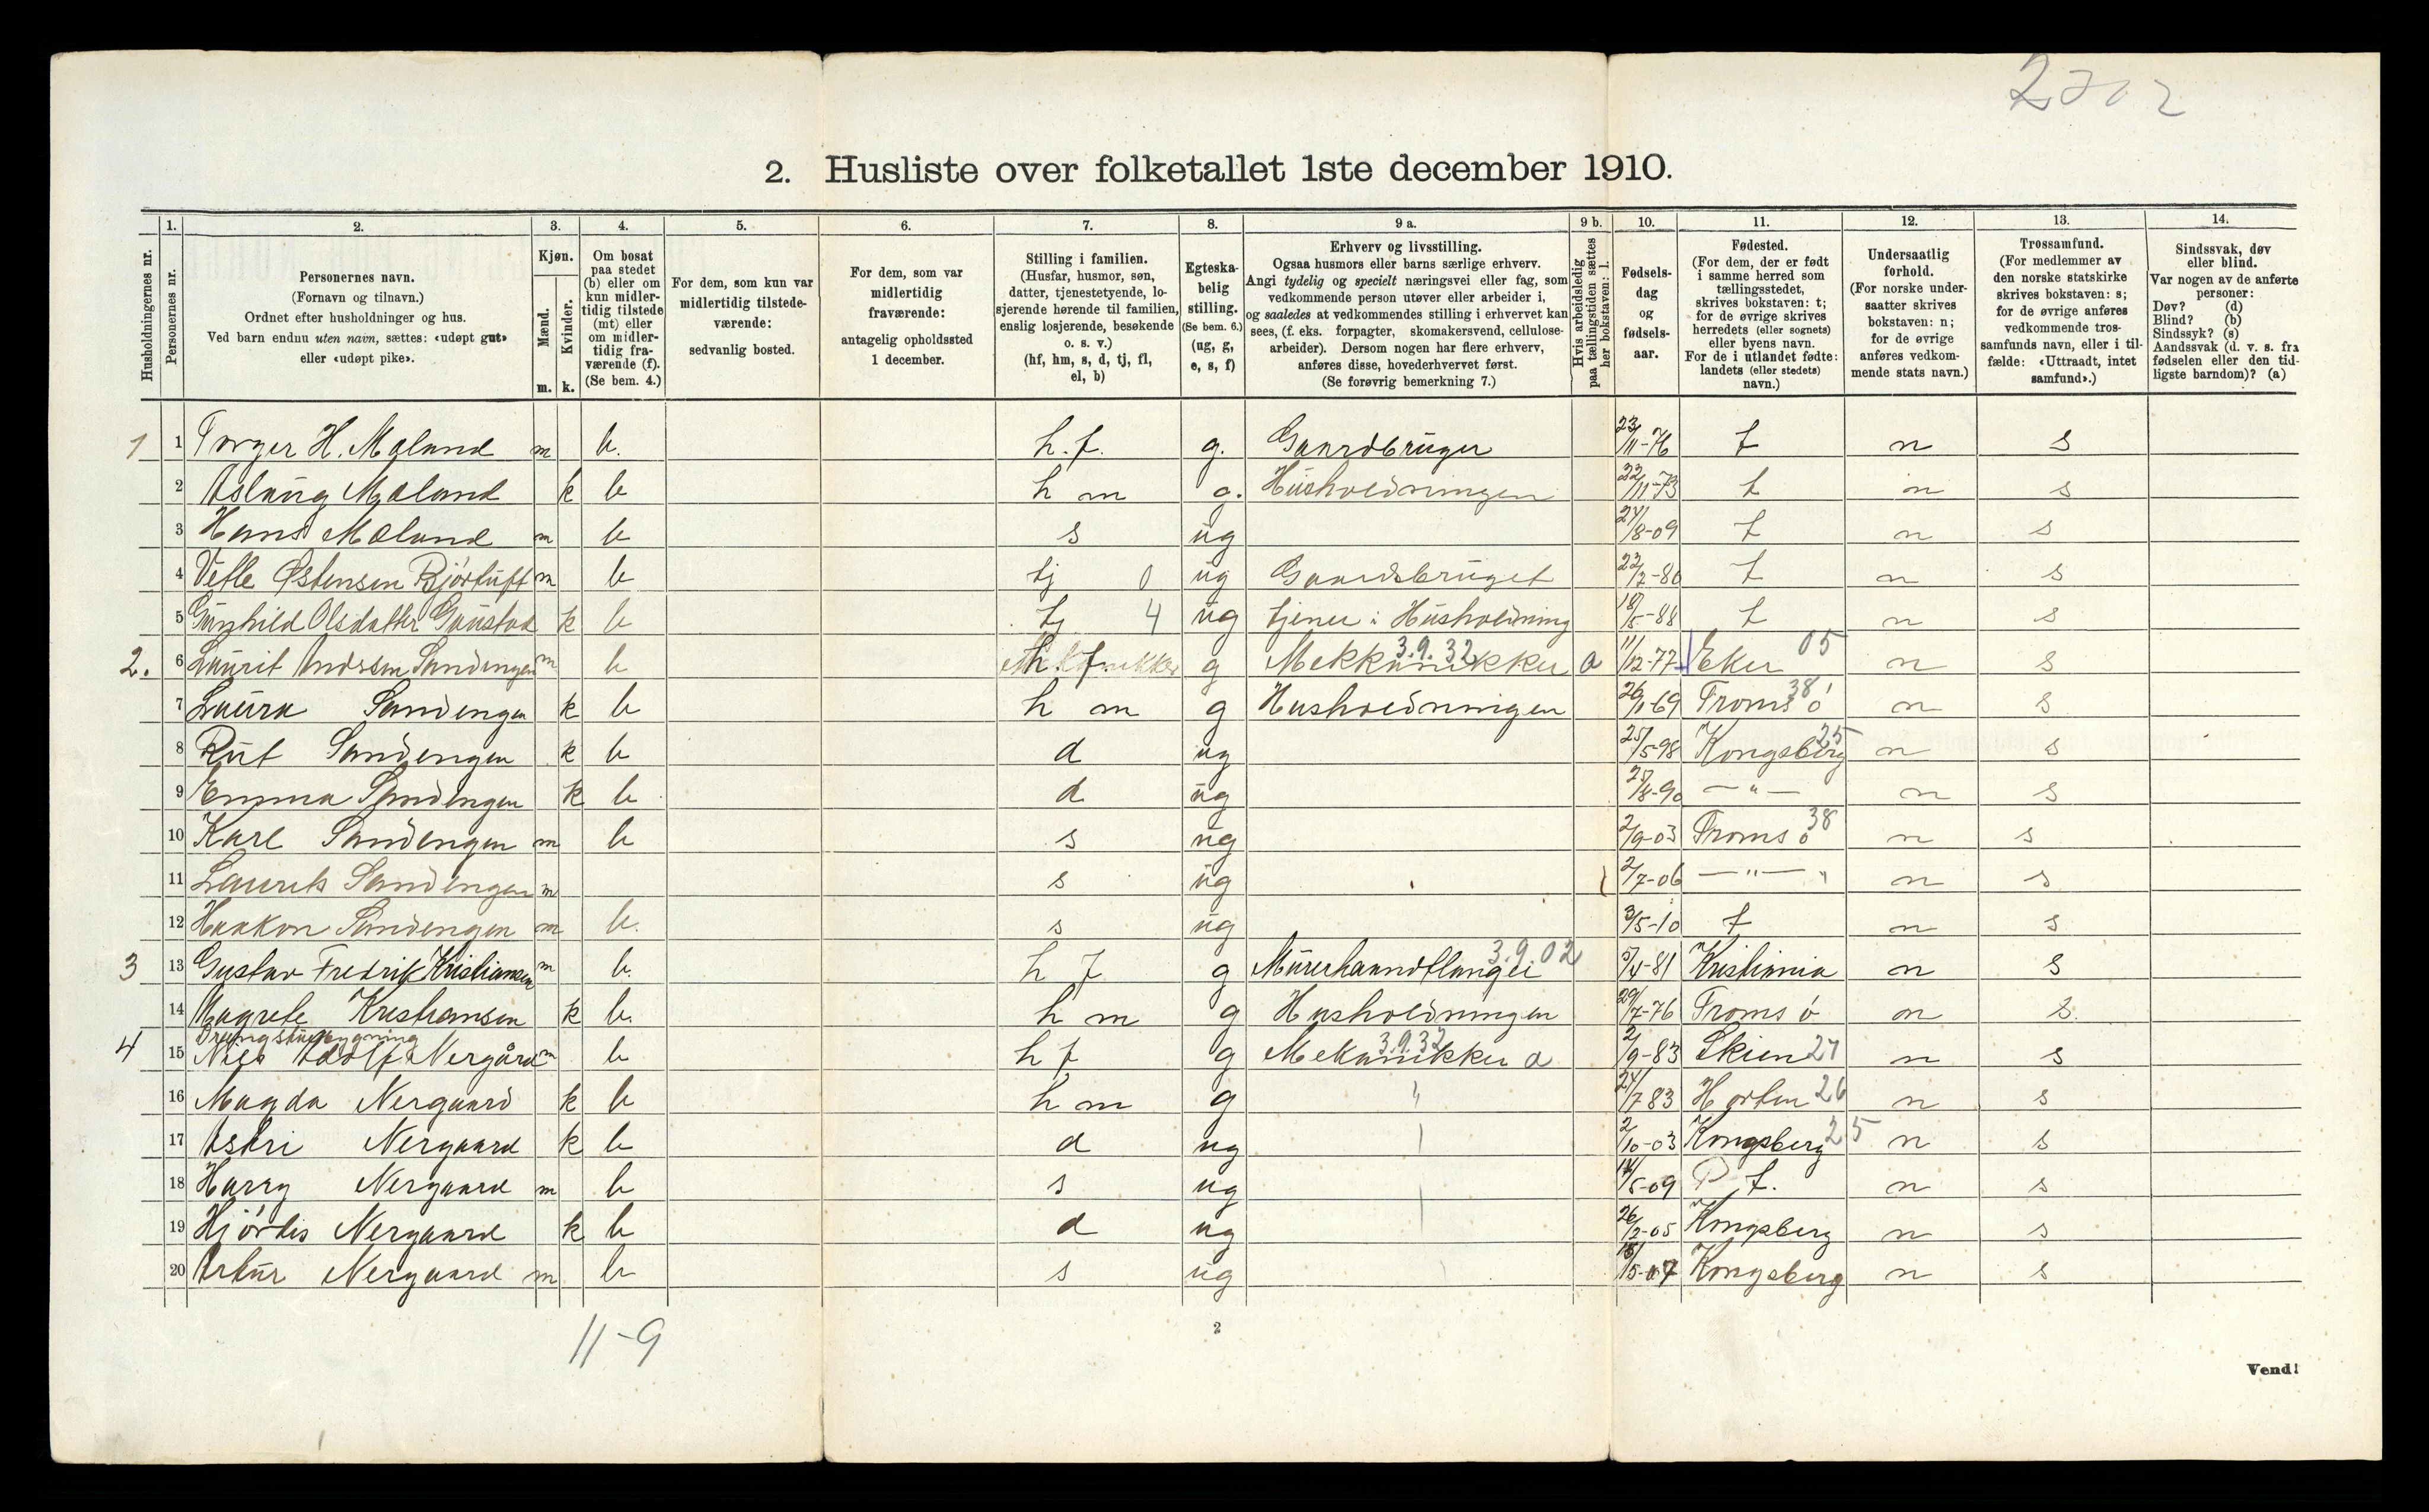 2. Husliste over folketallet 1ste december 1910.
Husholdningernes nr.
1.
Personernes nr.
2.
Personernes navn.
(Fornavn og tilnavn.)
Ordnet efter husholdninger og hus.
Ved barn endnu uten navn, sættes: «udøpt gut»
eller «udøpt pike».
3.
Kjøn.
Mænd.
Kvinder.
m. k.
4.
Om bosat
paa stedet
(b) eller om
kun midler-
tidig tilstede
(mt) eller
om midler-
tidig fra-
værende (f).
(Se bem. 4.)
5.
For dem, som kun var
midlertidig tilstede-
værende:
sedvanlig bosted.
6.
For dem, som var
midlertidig
fraværende:
antagelig opholdssted
1 december.
7.
Stilling i familien.
(Husfar, husmor, søn,
datter, tjenestetyende, lo-
sjerende hørende til familien,
enslig losjerende, besøkende
o. s. v.)
(hf, hm, s, d, tj, fl,
el, b)
8.
Egteska-
belig
stilling.
(Se bem. 6.)
(ug, g,
e, s, f)
9 a.
Erhverv og livsstilling.
Ogsaa husmors eller barns særlige erhverv.
Angi tydelig og specielt næringsvei eller fag, som
vedkommende person utøver eller arbeider i,
og saaledes at vedkommendes stilling i erhvervet kan
sees, (f. eks. forpagter, skomakersvend, cellulose-
arbeider). Dersom nogen har flere erhverv,
anføres disse, hovederhvervet først.
(Se forøvrig bemerkning 7.)
9 b.
Hvis arbeidsledig
paa tællingstiden sættes
her bokstaven: l.
10.
Fødsels-
dag
og
fødsels-
aar.
11.
Fødested.
(For dem, der er født
i samme herred som
tællingsstedet,
skrives bokstaven: t;
for de øvrige skrives
herredets (eller sognets)
eller byens navn.
For de i utlandet fødte:
landets (eller stedets)
navn.)
12.
Undersaatlig
forhold.
(For norske under-
saatter skrives
bokstaven: n;
for de øvrige
anføres vedkom-
mende stats navn.)
13.
Trossamfund.
(For medlemmer av
den norske statskirke
skrives bokstaven: s;
for de øvrige anføres
vedkommende tros-
samfunds navn, eller i til-
fælde: «Uttraadt, intet
samfund».)
14.
Sindssvak, døv
eller blind.
Var nogen av de anførte
personer:
Døv? (d)
Blind? (b)
Sindssyk? (s)
Aandssvak (d. v. s. fra
fødselen eller den tid-
ligste barndom)? (a)
1 1 Torger H. Mæland m b. h.f. g. Gaardbruger 23/11-76 t n s
2 Aslaug Mæland k b h m g. Husholdningen 22/11-73 t n s
3 Hans Mæland m b s ug 24/8-09 t n s
4 Vetle Østensen Bjørtuft m b tj 0 ug Gaardsbruget 22/2-80 t n s
5 Gunhild Olsdatter Gaustad k b tj 4 ug tjener i Husholdning 18/5-88 t n s
2. 6 Laurit Andssen Sandengen m b h f g Mekkanikker 3.9.32 a 11/12-77 Eker 05 n s
7 Laura Sandengen k b h m g Husholdningen 26/1-69 Tromsö 38 n s
8 Rut Sandengen k b d ug 25/5-98 Kongsberg 25 n s
9 Emma Sandengen k b d ug 27/8-90 — " — n s
10 Karl Sandengen m b s ug 2/9-03 Tromsö 38 n s
11 Laurits Sandengen m s ug 2/7-06 — " — n s
12 Haakon Sandengen m b. s ug 3/5-10 t n s
3 13 Gustav Fredrik Kristiansen m b. h f g Murerhaandlanger 3.9.02 5/4-81 Kristiania n s
14 Magrete Kristiansen k b. h m g Husholdningen 29/7-76 Tromsö n s.
Drengstuebygning
4 15 Nils Adolf Nergård m b h f g Mekanikker a 3.9.32 2/9-83 Skien 27 n s
16 Magda Nergaard k b h m g 24/7 83 Horten 26 n s
17 Astri Nergaard k b d ug 2/10-03 Kongsberg 25 n s
18 Harry Nergaard m b s ug 14/5-09 t. n s
19 Hjördis Nergaard k b d ug 26/2-05 Kongsberg n s
20 Artur Nergaard m b s ug 18/5-07 Kongsberg n s
11-9
2
Vend!